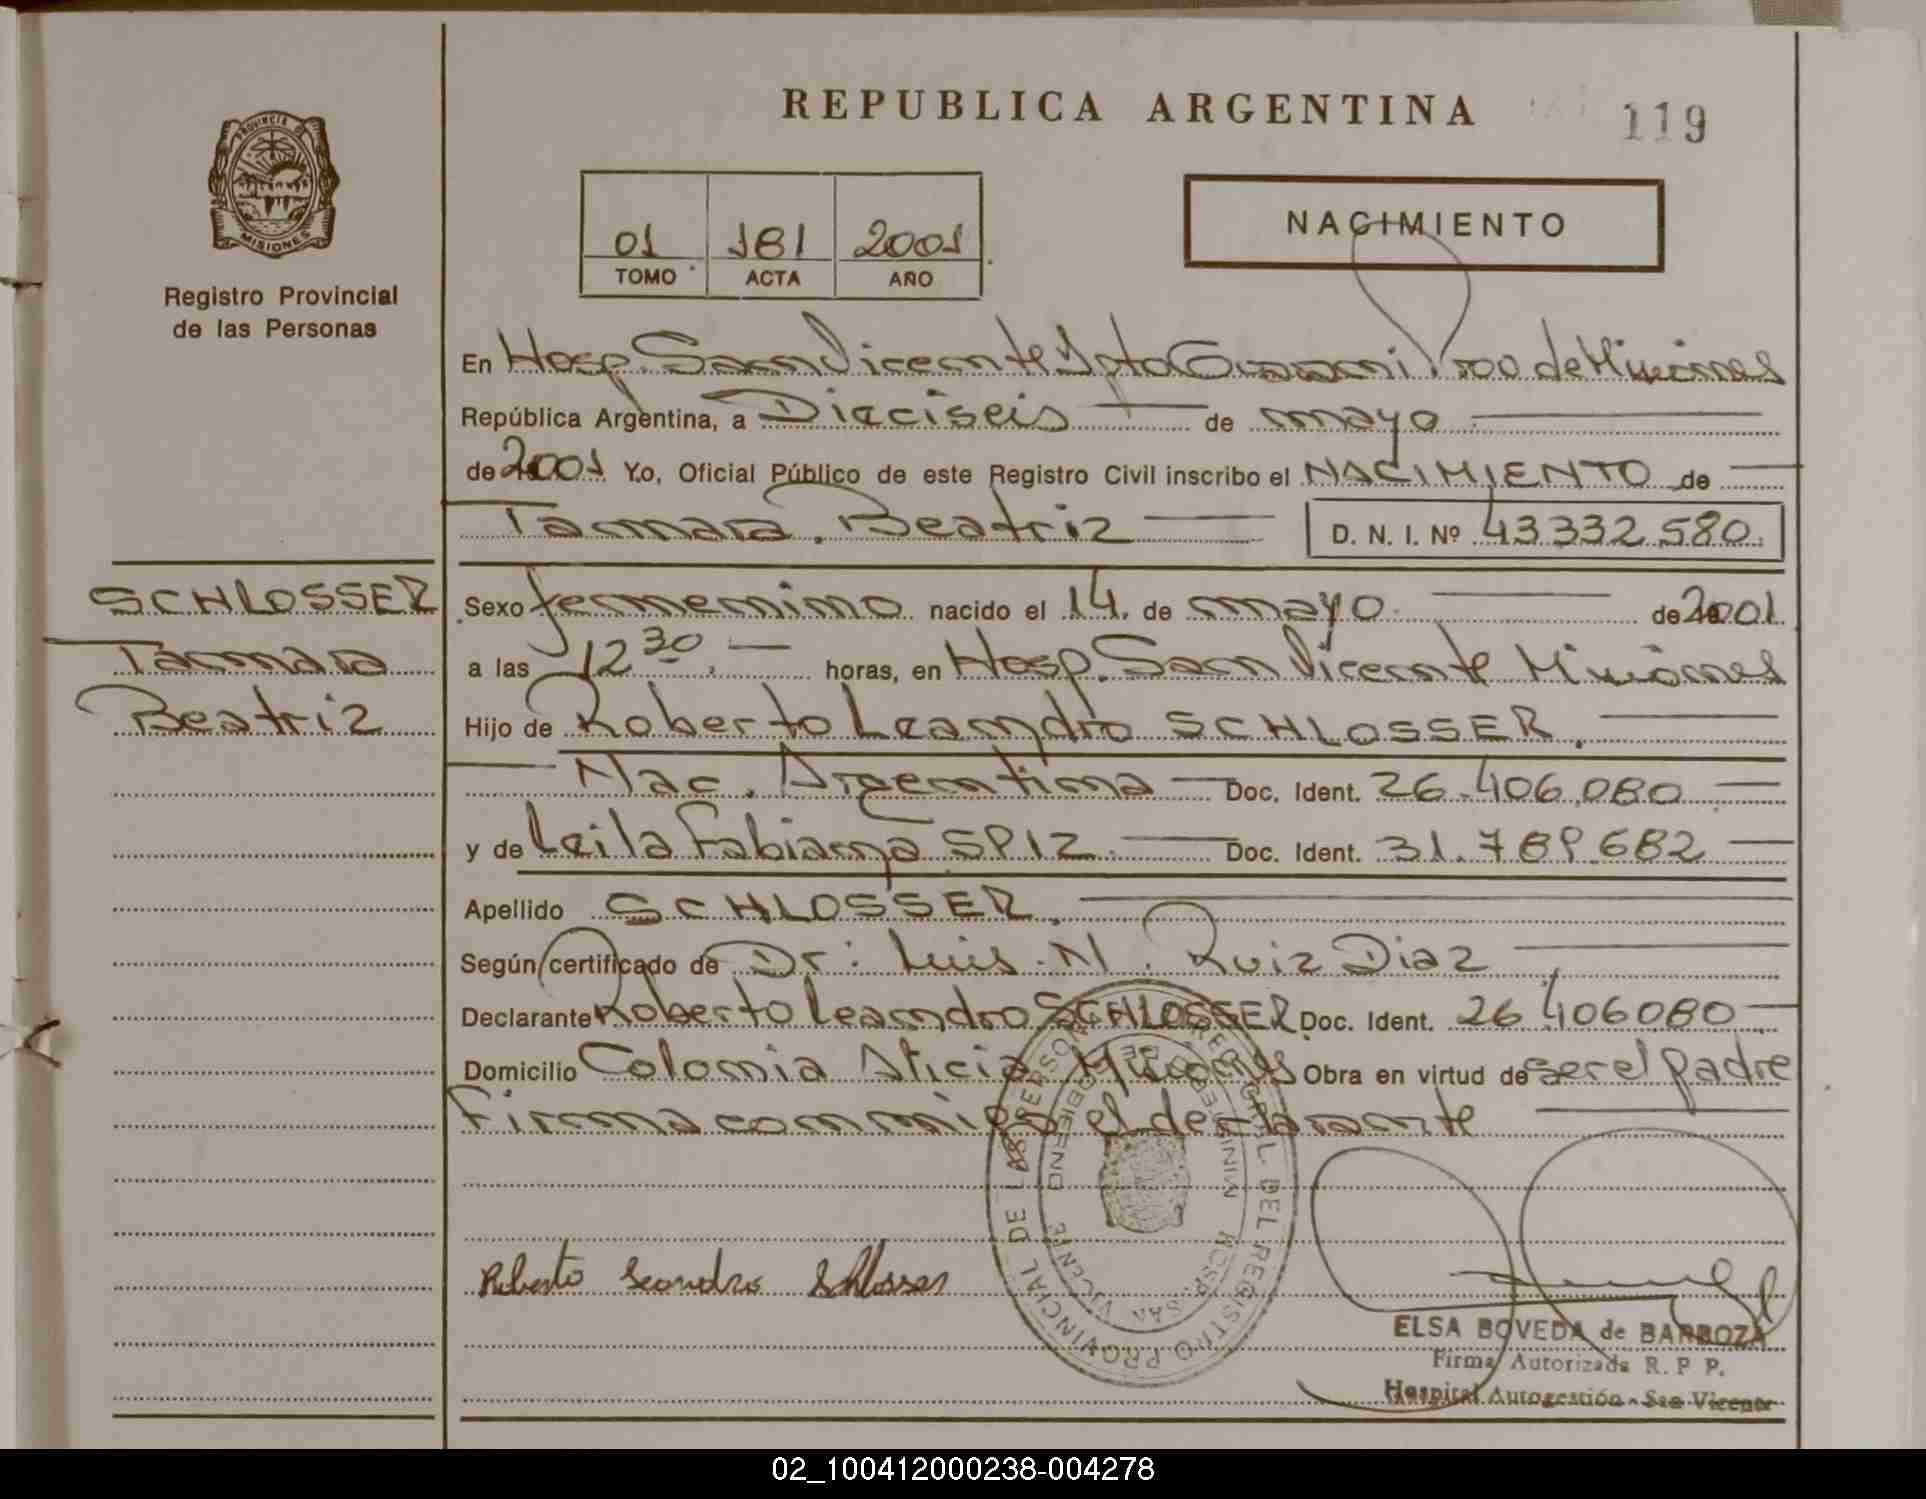 REPUBLICA ARGENTINA
119
PROVINCIA DE
MISIONES
Registro Provincial
de las Personas
01 181 2001
TOMO ACTA AÑO
NACIMIENTO
En Hosp. San Vicente Dpto Guarani Prov de Misiones
República Argentina, a Dieciseis de mayo
de 2001 Yo, Oficial Público de este Registro Civil inscribo el NACIMIENTO de
Tamara Beatriz D. N. I. Nº 43332580
SCHLOSSER
Tamara
Beatriz
Sexo femenino nacido el 14 de mayo de 2001
a las 12 30 horas, en Hosp. San Vicente Misiones
Hijo de Roberto Leandro SCHLOSSER
Nac. Argentina Doc. Ident. 26.406.080
y de Leila Fabiana SPIZ Doc. Ident. 31.789.682
Apellido SCHLOSSER
Según certificado de Dr. Luis N. Ruiz Diaz
Declarante Roberto Leandro SCHLOSSER Doc. Ident. 26406080
Domicilio Colonia Alicia Misiones Obra en virtud de ser el padre
Firma conmigo el declarante
REGISTRO PROVINCIAL DE LAS PERSONAS
HOSP. SAN VICENTE
Roberto Leandro Schlosser
ELSA BOVEDA de BARBOZA
Firma Autorizada R. P. P.
Hospital Autogestión - San Vicente
02_100412000238-004278